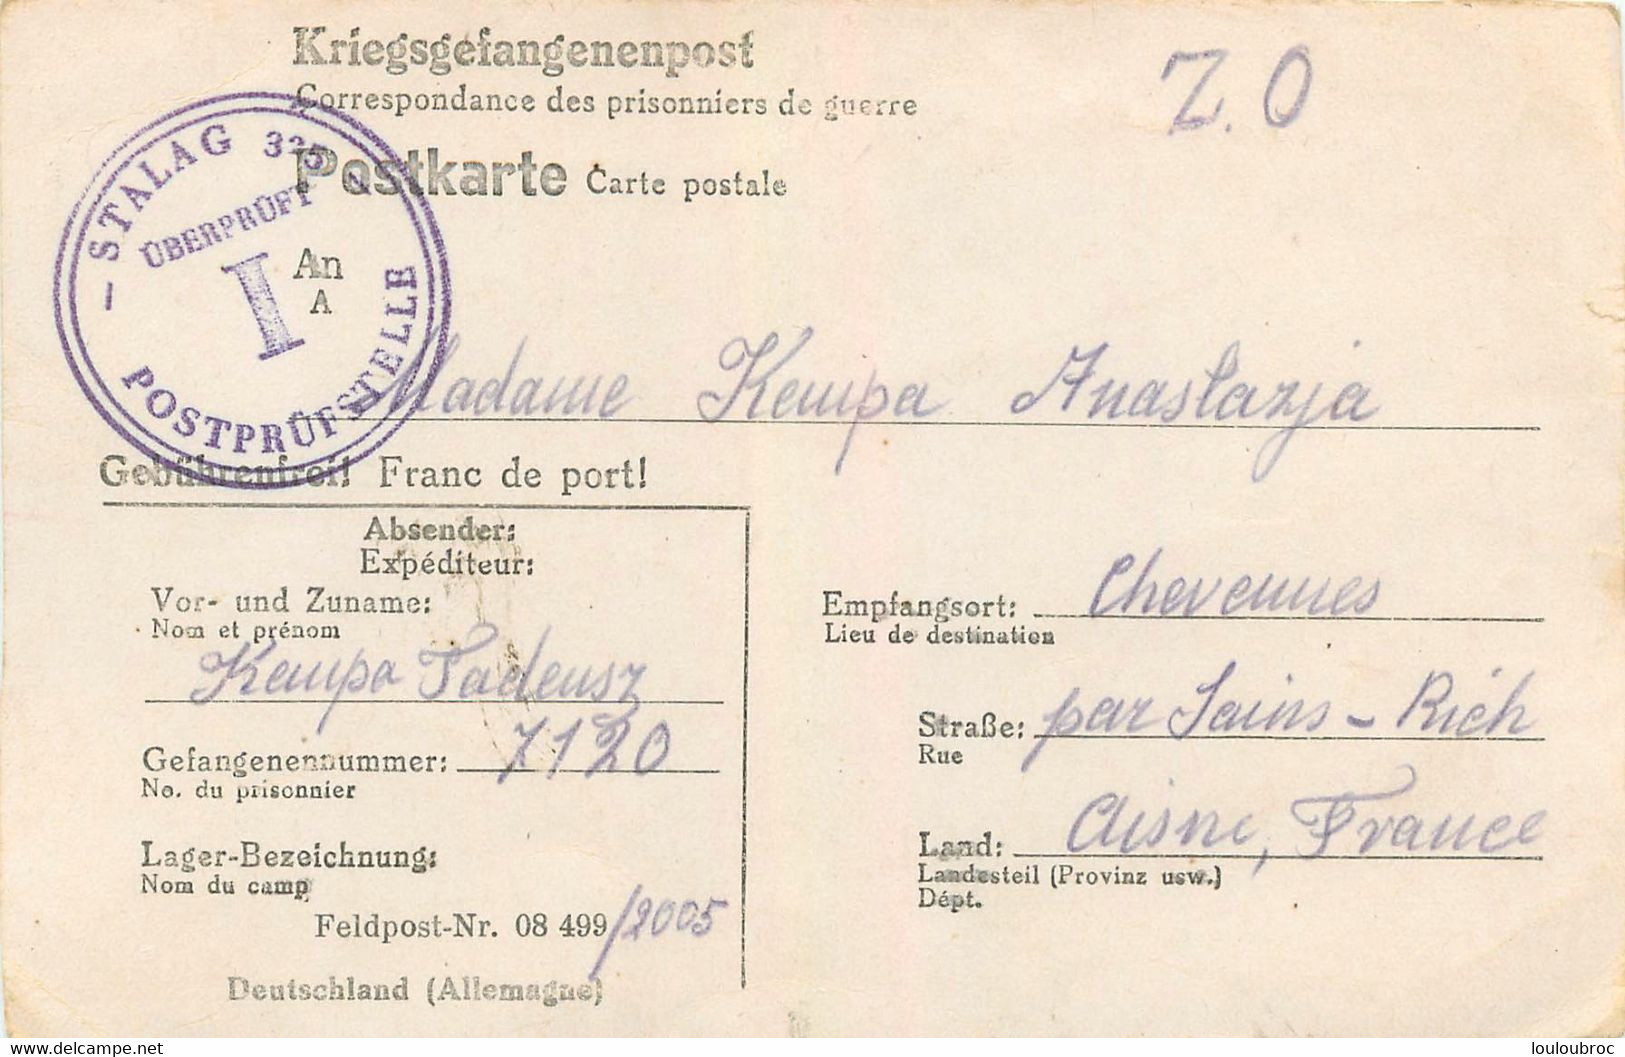 Kriegsgefangenenpost
Correspondance des prisonniers de guerre
Z.O
Postkarte Carte postale
STALAG 325
ÜBERPRÜFT
I
POSTPRÜFSTELLE
An
A
Madame Kempa Anastazja
Gebührenfrei! Franc de port!
Absender:
Expéditeur:
Vor- und Zuname:
Nom et prénom
Kempa Tadeusz
Gefangenennummer: 7120
No. du prisonnier
Lager-Bezeichnung:
Nom du camp
Feldpost-Nr. 08 499/2005
Deutschland (Allemagne)
Empfangsort: Chevennes
Lieu de destination
Straße: par Sains-Rich
Rue
Land: Aisne, France
Landesteil (Provinz usw.)
Dépt.
Delcampe.net
louloubroc